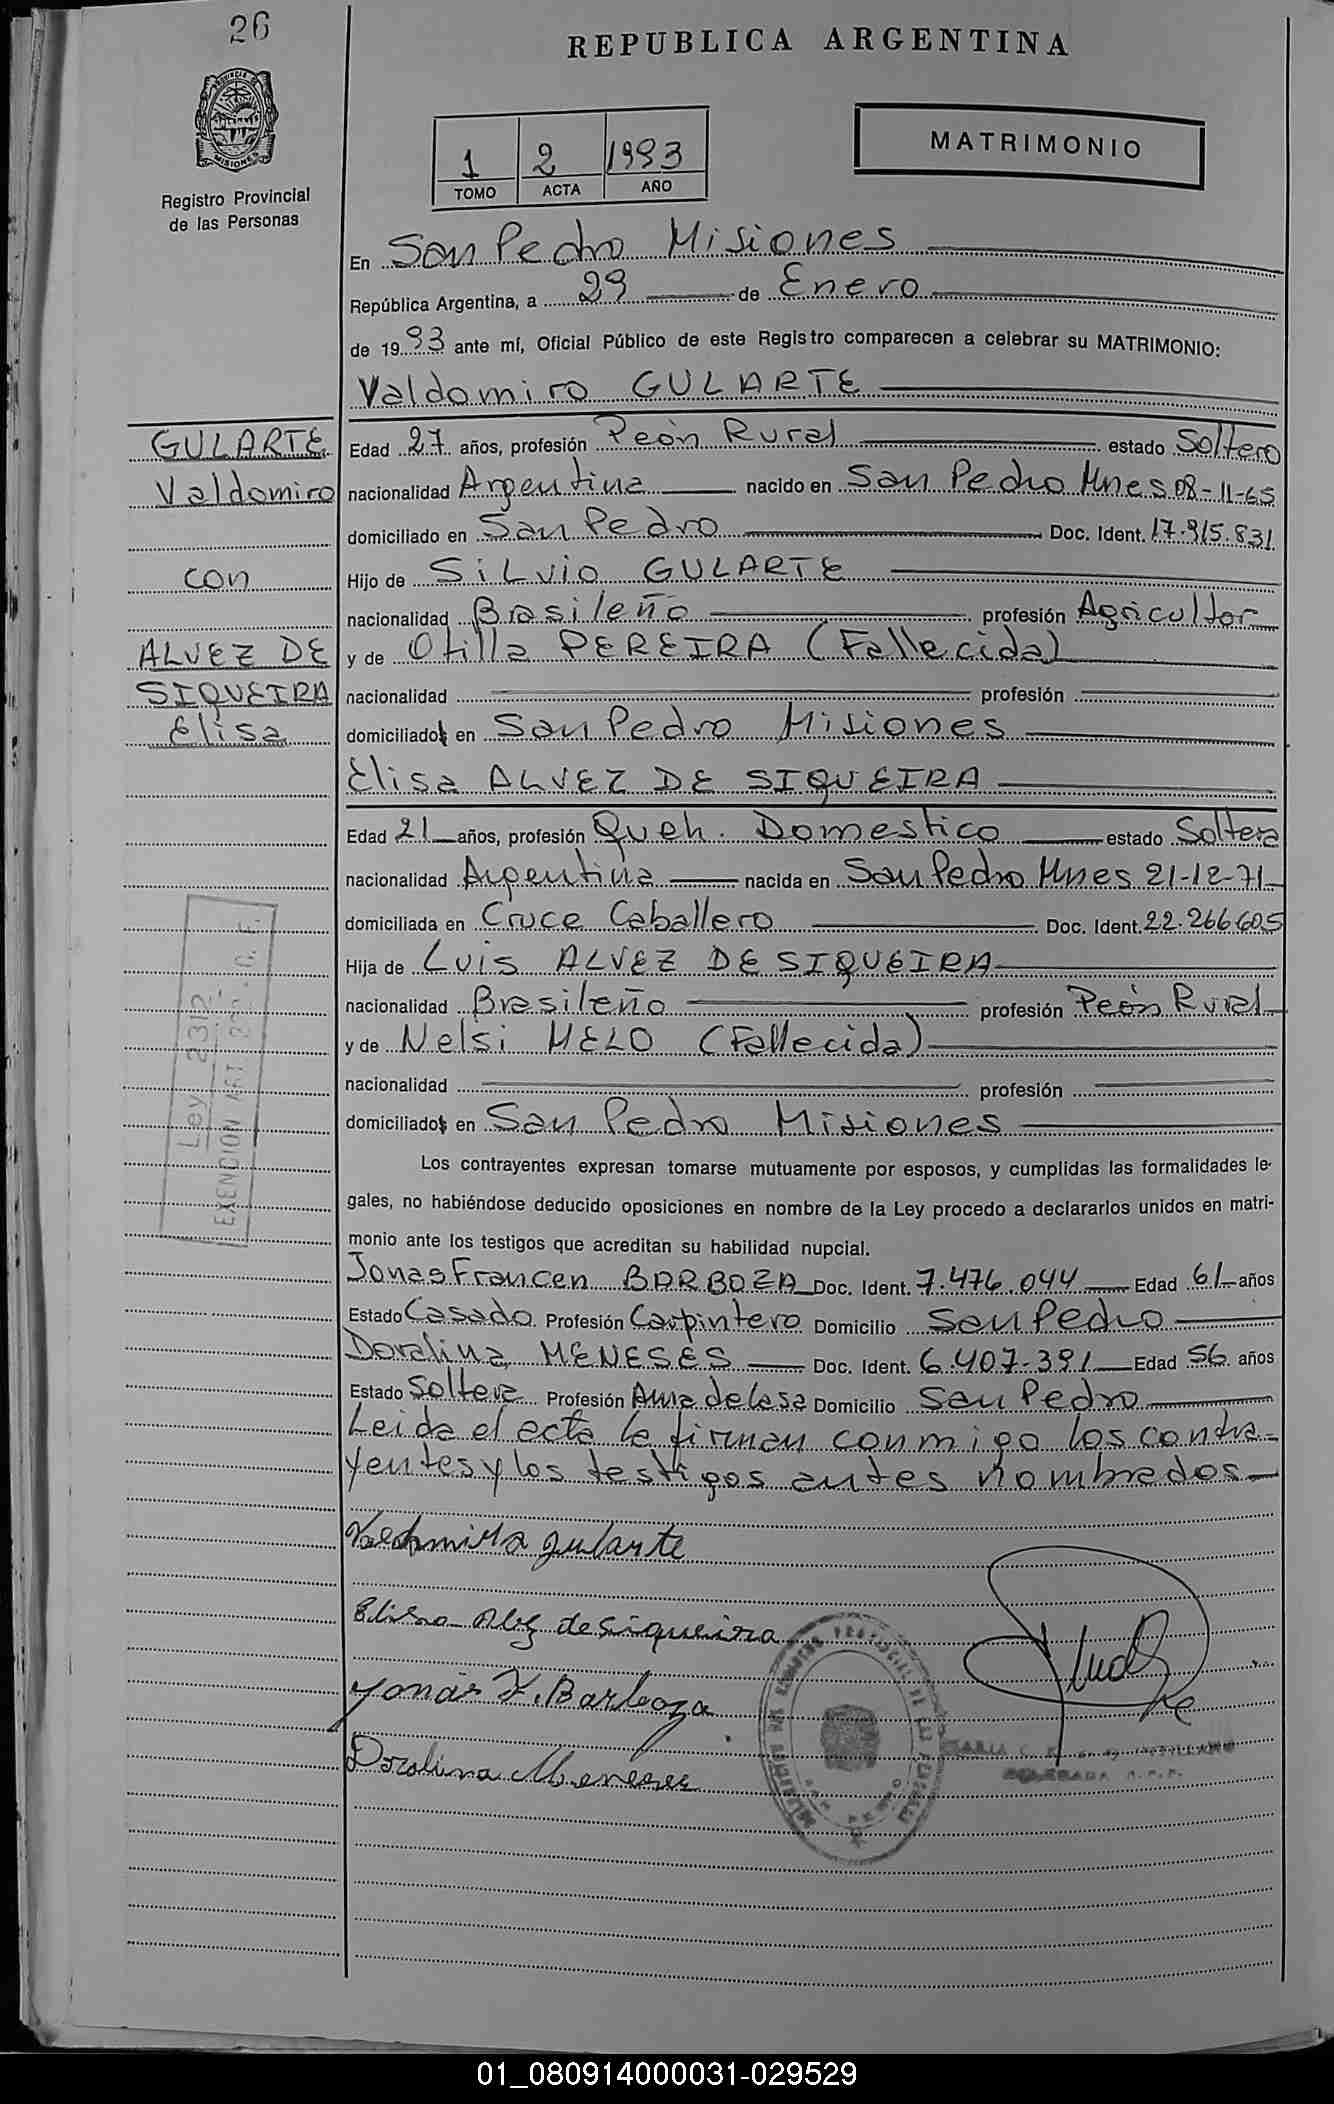 26
REPUBLICA ARGENTINA
PROVINCIA DE MISIONES
Registro Provincial
de las Personas
1 2 1993
TOMO ACTA AÑO
MATRIMONIO
En San Pedro Misiones
República Argentina, a 29 de Enero
de 1993 ante mí, Oficial Público de este Registro comparecen a celebrar su MATRIMONIO:
Valdomiro GULARTE
GULARTE
Valdomiro
con
ALVEZ DE
SIQUEIRA
Elisa
Edad 27 años, profesión Peón Rural estado Soltero
nacionalidad Argentina nacido en San Pedro Mnes 08-11-65
domiciliado en San Pedro Doc. Ident. 17.915.831
Hijo de SiLvio GULARTE
nacionalidad Brasileño profesión Agricultor
y de Otilla PEREIRA (Fallecida)
nacionalidad profesión
domiciliados en San Pedro Misiones
Elisa ALVEZ DE SIQUEIRA
Edad 21 años, profesión Queh. Domestico estado Soltera
nacionalidad Argentina nacida en San Pedro Mnes 21-12-71
domiciliada en Cruce Caballero Doc. Ident. 22.266605
Hija de Luis ALVEZ DE SIQUEIRA
nacionalidad Brasileño profesión Peón Rural
y de Nelsi MELO (Fallecida)
nacionalidad profesión
domiciliados en San Pedro Misiones
Ley 2312
EXENCION ART
Los contrayentes expresan tomarse mutuamente por esposos, y cumplidas las formalidades le-
gales, no habiéndose deducido oposiciones en nombre de la Ley procedo a declararlos unidos en matri-
monio ante los testigos que acreditan su habilidad nupcial.
Jonas Francen BARBOZA Doc. Ident. 7.476.044 Edad 61 años
Estado Casado Profesión Carpintero Domicilio San Pedro
Doralina MENESES Doc. Ident. 6.407.391 Edad 56 años
Estado Soltera Profesión Ama de Casa Domicilio San Pedro
Leida el acta la firman conmigo los contra-
yentes y los testigos antes nombrados
gularte
de Siqueira
Jonas F. Barboza
Doralina Meneses
01_080914000031-029529